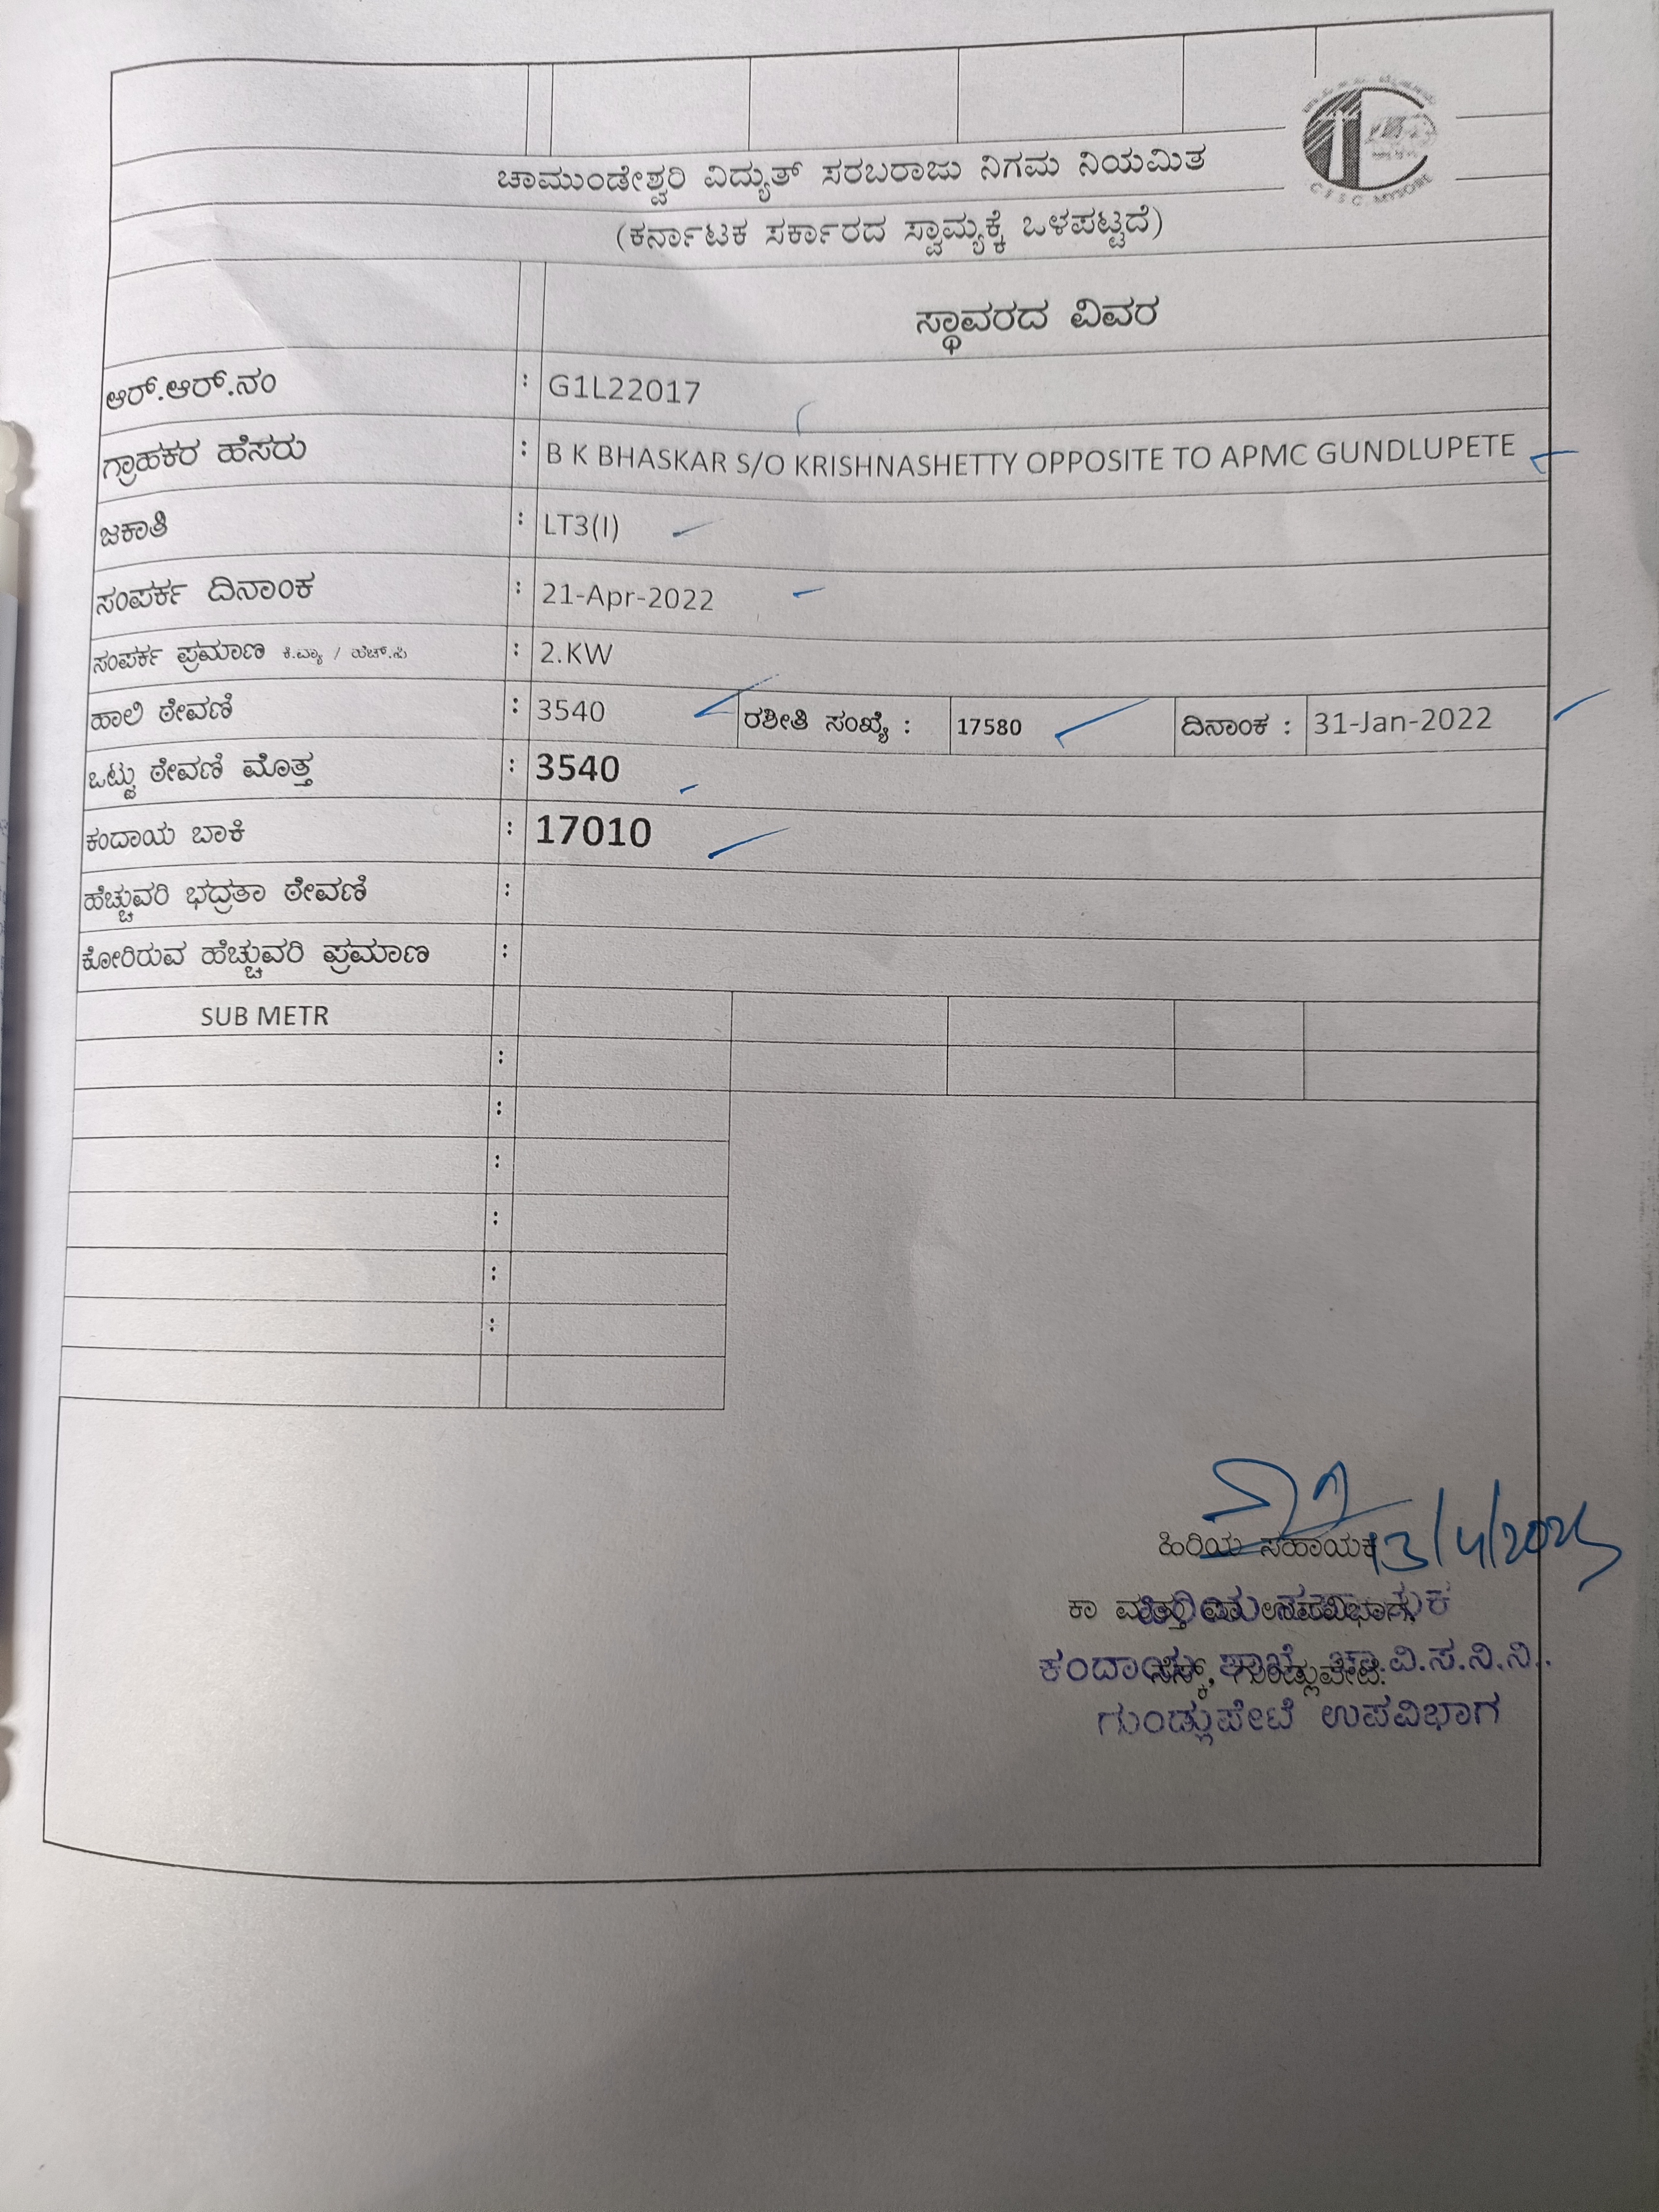 C E S C MYSORE
ಚಾಮುಂಡೇಶ್ವರಿ ವಿದ್ಯುತ್ ಸರಬರಾಜು ನಿಗಮ ನಿಯಮಿತ
(ಕರ್ನಾಟಕ ಸರ್ಕಾರದ ಸ್ವಾಮ್ಯಕ್ಕೆ ಒಳಪಟ್ಟದೆ)
ಸ್ಥಾವರದ ವಿವರ
ಆರ್.ಆರ್.ನಂ : G1L22017
ಗ್ರಾಹಕರ ಹೆಸರು : B K BHASKAR S/O KRISHNASHETTY OPPOSITE TO APMC GUNDLUPETE
ಜಕಾತಿ : LT3(I)
ಸಂಪರ್ಕ ದಿನಾಂಕ : 21-Apr-2022
ಸಂಪರ್ಕ ಪ್ರಮಾಣ ಕಿ.ವ್ಯಾ / ಹೆಚ್.ಪಿ : 2.KW
ಹಾಲಿ ಠೇವಣಿ : 3540 ರಶೀತಿ ಸಂಖ್ಯೆ : 17580 ದಿನಾಂಕ : 31-Jan-2022
ಒಟ್ಟು ಠೇವಣಿ ಮೊತ್ತ : 3540
ಕಂದಾಯ ಬಾಕಿ : 17010
ಹೆಚ್ಚುವರಿ ಭದ್ರತಾ ಠೇವಣಿ :
ಕೋರಿರುವ ಹೆಚ್ಚುವರಿ ಪ್ರಮಾಣ :
SUB METR
:
:
:
:
:
:
ಹಿರಿಯ ಸಹಾಯಕ
ಕಾ ಮತ್ತು ಉಪವಿಭಾಗ,
ಹಿರಿಯ ಸಹಾಯಕ
ಸೆಸ್ಕ್, ಗುಂಡ್ಲುಪೇಟೆ.
ಕಂದಾಯ ಶಾಖೆ, ಚಾ.ವಿ.ಸ.ನಿ.ನಿ.
ಗುಂಡ್ಲುಪೇಟೆ ಉಪವಿಭಾಗ